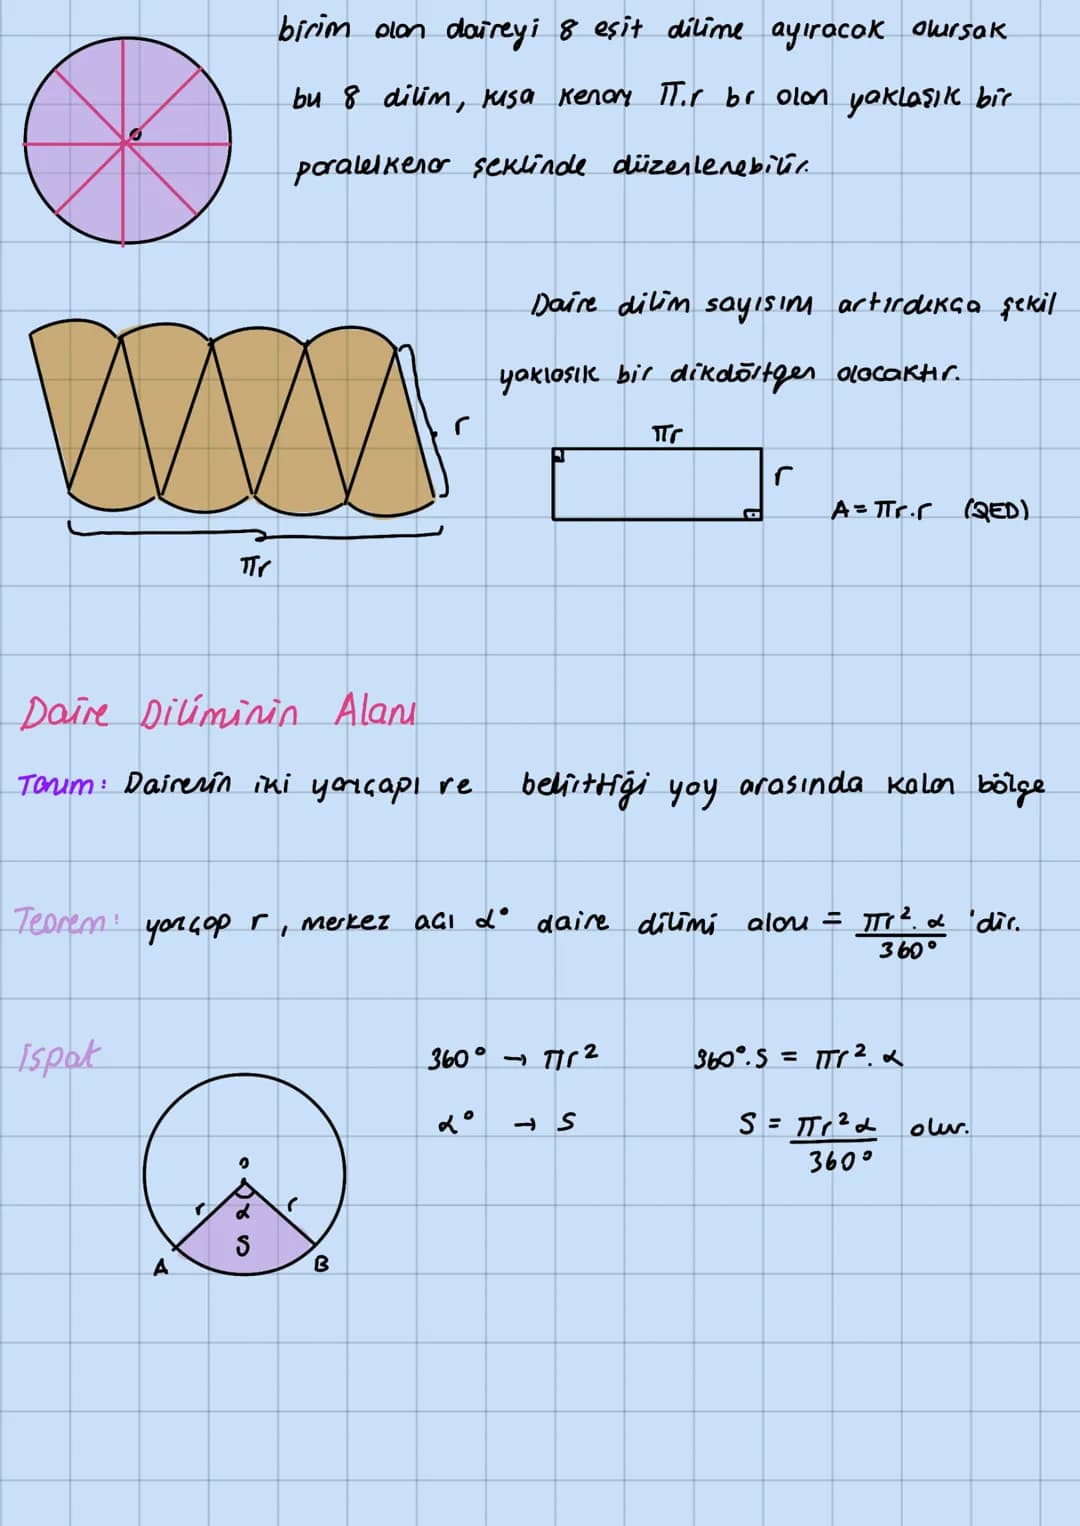 birim olan daireyi 8 eşit dilime ayıracak olursak
bu 8 dilim, kısa kenarı π.r br olan yaklaşık bir
paralelkenar şeklinde düzenlenebilir.
Daire dilim sayısını artırdıkça şekil
yaklaşık bir dikdörtgen olacaktır.
o
r
πr
πr
r
A = πr.r (QED)
Daire Diliminin Alanı
Tanım: Dairenin iki yarıçapı ve belirttiği yay arasında kalan bölge
Teorem: yarıçap r, merkez açı α° daire dilimi alanı = πr².α / 360° 'dir.
İspat
360° → πr² 360°.S = πr².α
α° → S S = πr²α / 360° olur.
o
r α r
S
A B